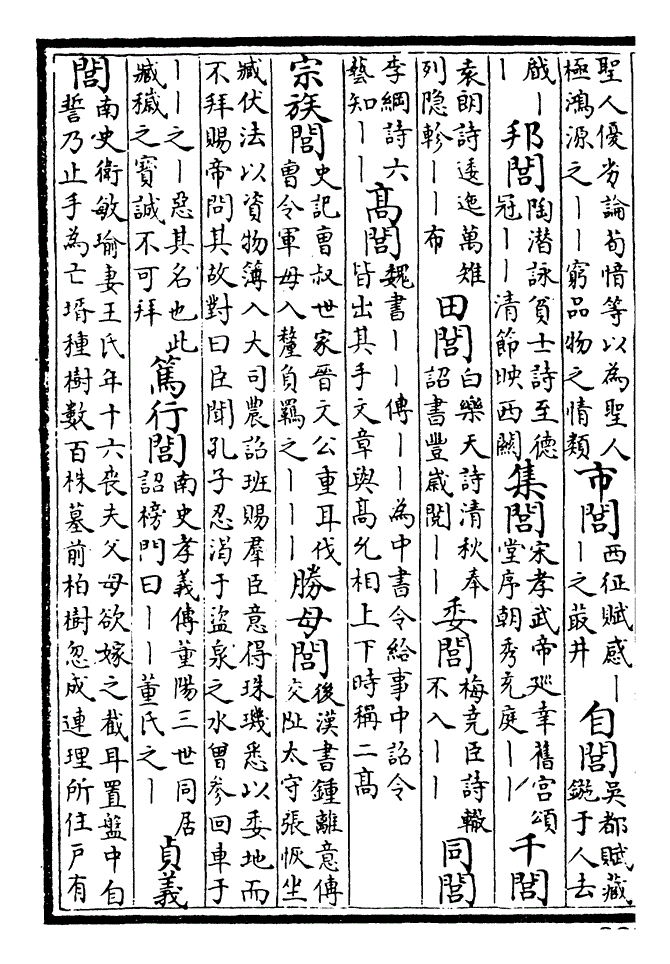 聖人優劣論荀愔等以為聖人
極鴻源之｜｜窮品物之情類
市閭
西征賦感｜
｜之菆井
自閭
吳都賦藏
鎚于人去
戚｜
｜
邦閭
陶潛詠貧士詩至德
冠｜｜清節映西關
集閭
宋孝武帝廵幸舊宮頌
堂序朝秀充庭｜｜
千閭
袁朗詩逶迤萬雉
列隐軫｜｜布
田閭
白樂天詩清秋奉
詔書豐嵗閱｜｜
委閭
梅堯臣詩轍
不入｜｜
同閭
李綱詩六
藝知｜｜
高閭
魏書｜｜傳｜｜為中書令給事中詔令
皆出其手文章與高允相上下時稱二高
宗族閭
史記曹叔世家晉文公重耳伐
曹令軍毋入釐負羈之｜｜｜
勝母閭
後漢書鍾離意傳
交阯太守張恢坐
臧伏法以資物簿入大司農詔班賜羣臣意得珠璣悉以委地而
不拜賜帝問其故對曰臣聞孔子忍渴于盜泉之水曾參回車于
｜｜之｜惡其名也此
臧穢之寳誠不可拜
篤行閭
南史孝義傳董陽三世同居
詔榜門曰｜｜董氏之｜
貞義
閭
南史衛敬瑜妻王氏年十六喪夫父母欲嫁之截耳置盤中自
誓乃止手為亡壻種樹數百株墓前柏樹忽成連理所住戸有